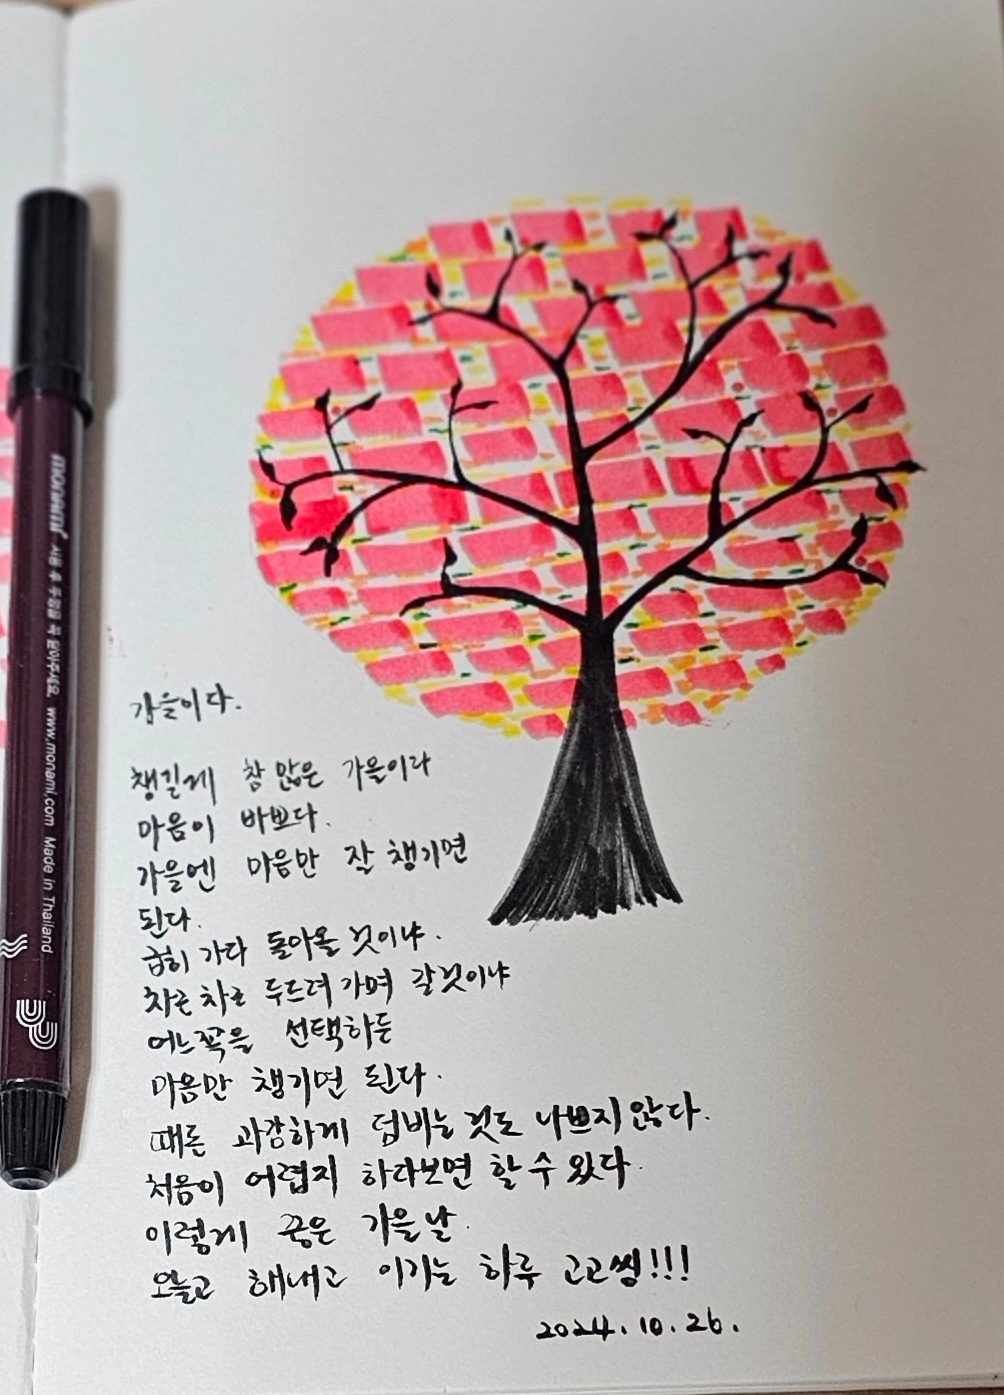 monami 사용 후 뚜껑을 꼭 닫아주세요. www.monami.com Made in Thailand
가을이다.
챙길게 참 많은 가을이라
마음이 바쁘다.
가을엔 마음만 잘 챙기면
된다.
급히 가다 돌아올 것이냐.
차근차근 두드려가며 갈것이냐
어느쪽을 선택하든
마음만 챙기면 된다.
때론 과감하게 덤비는것도 나쁘지않다.
처음이 어렵지 하다보면 할 수 있다.
이렇게 좋은 가을날.
오늘도 해내고 이기는 하루 고고씽!!!
2024.10.26.